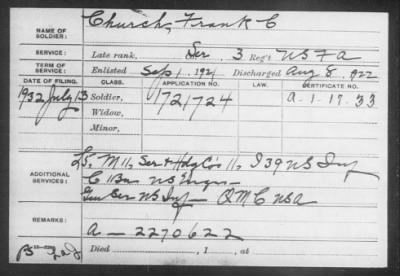 NAME OF SOLDIER: Church, Frank C
SERVICE: Late rank, Ser 3 Reg't US F A
TERM OF SERVICE: Enlisted Sep 1, 1921 Discharged Aug 8, 1922
DATE OF FILING. CLASS. APPLICATION NO. LAW. CERTIFICATE NO.
1932 July 13 Soldier, 1721724 A-1-17-33
Widow,
Minor,
ADDITIONAL SERVICES: L, M 11, Ser & Hdq Co's 11, I 39 US Inf
C US Engrs
Gen Ser US Inf — QMC USA
REMARKS: A — 2270622
Died , 1 , at